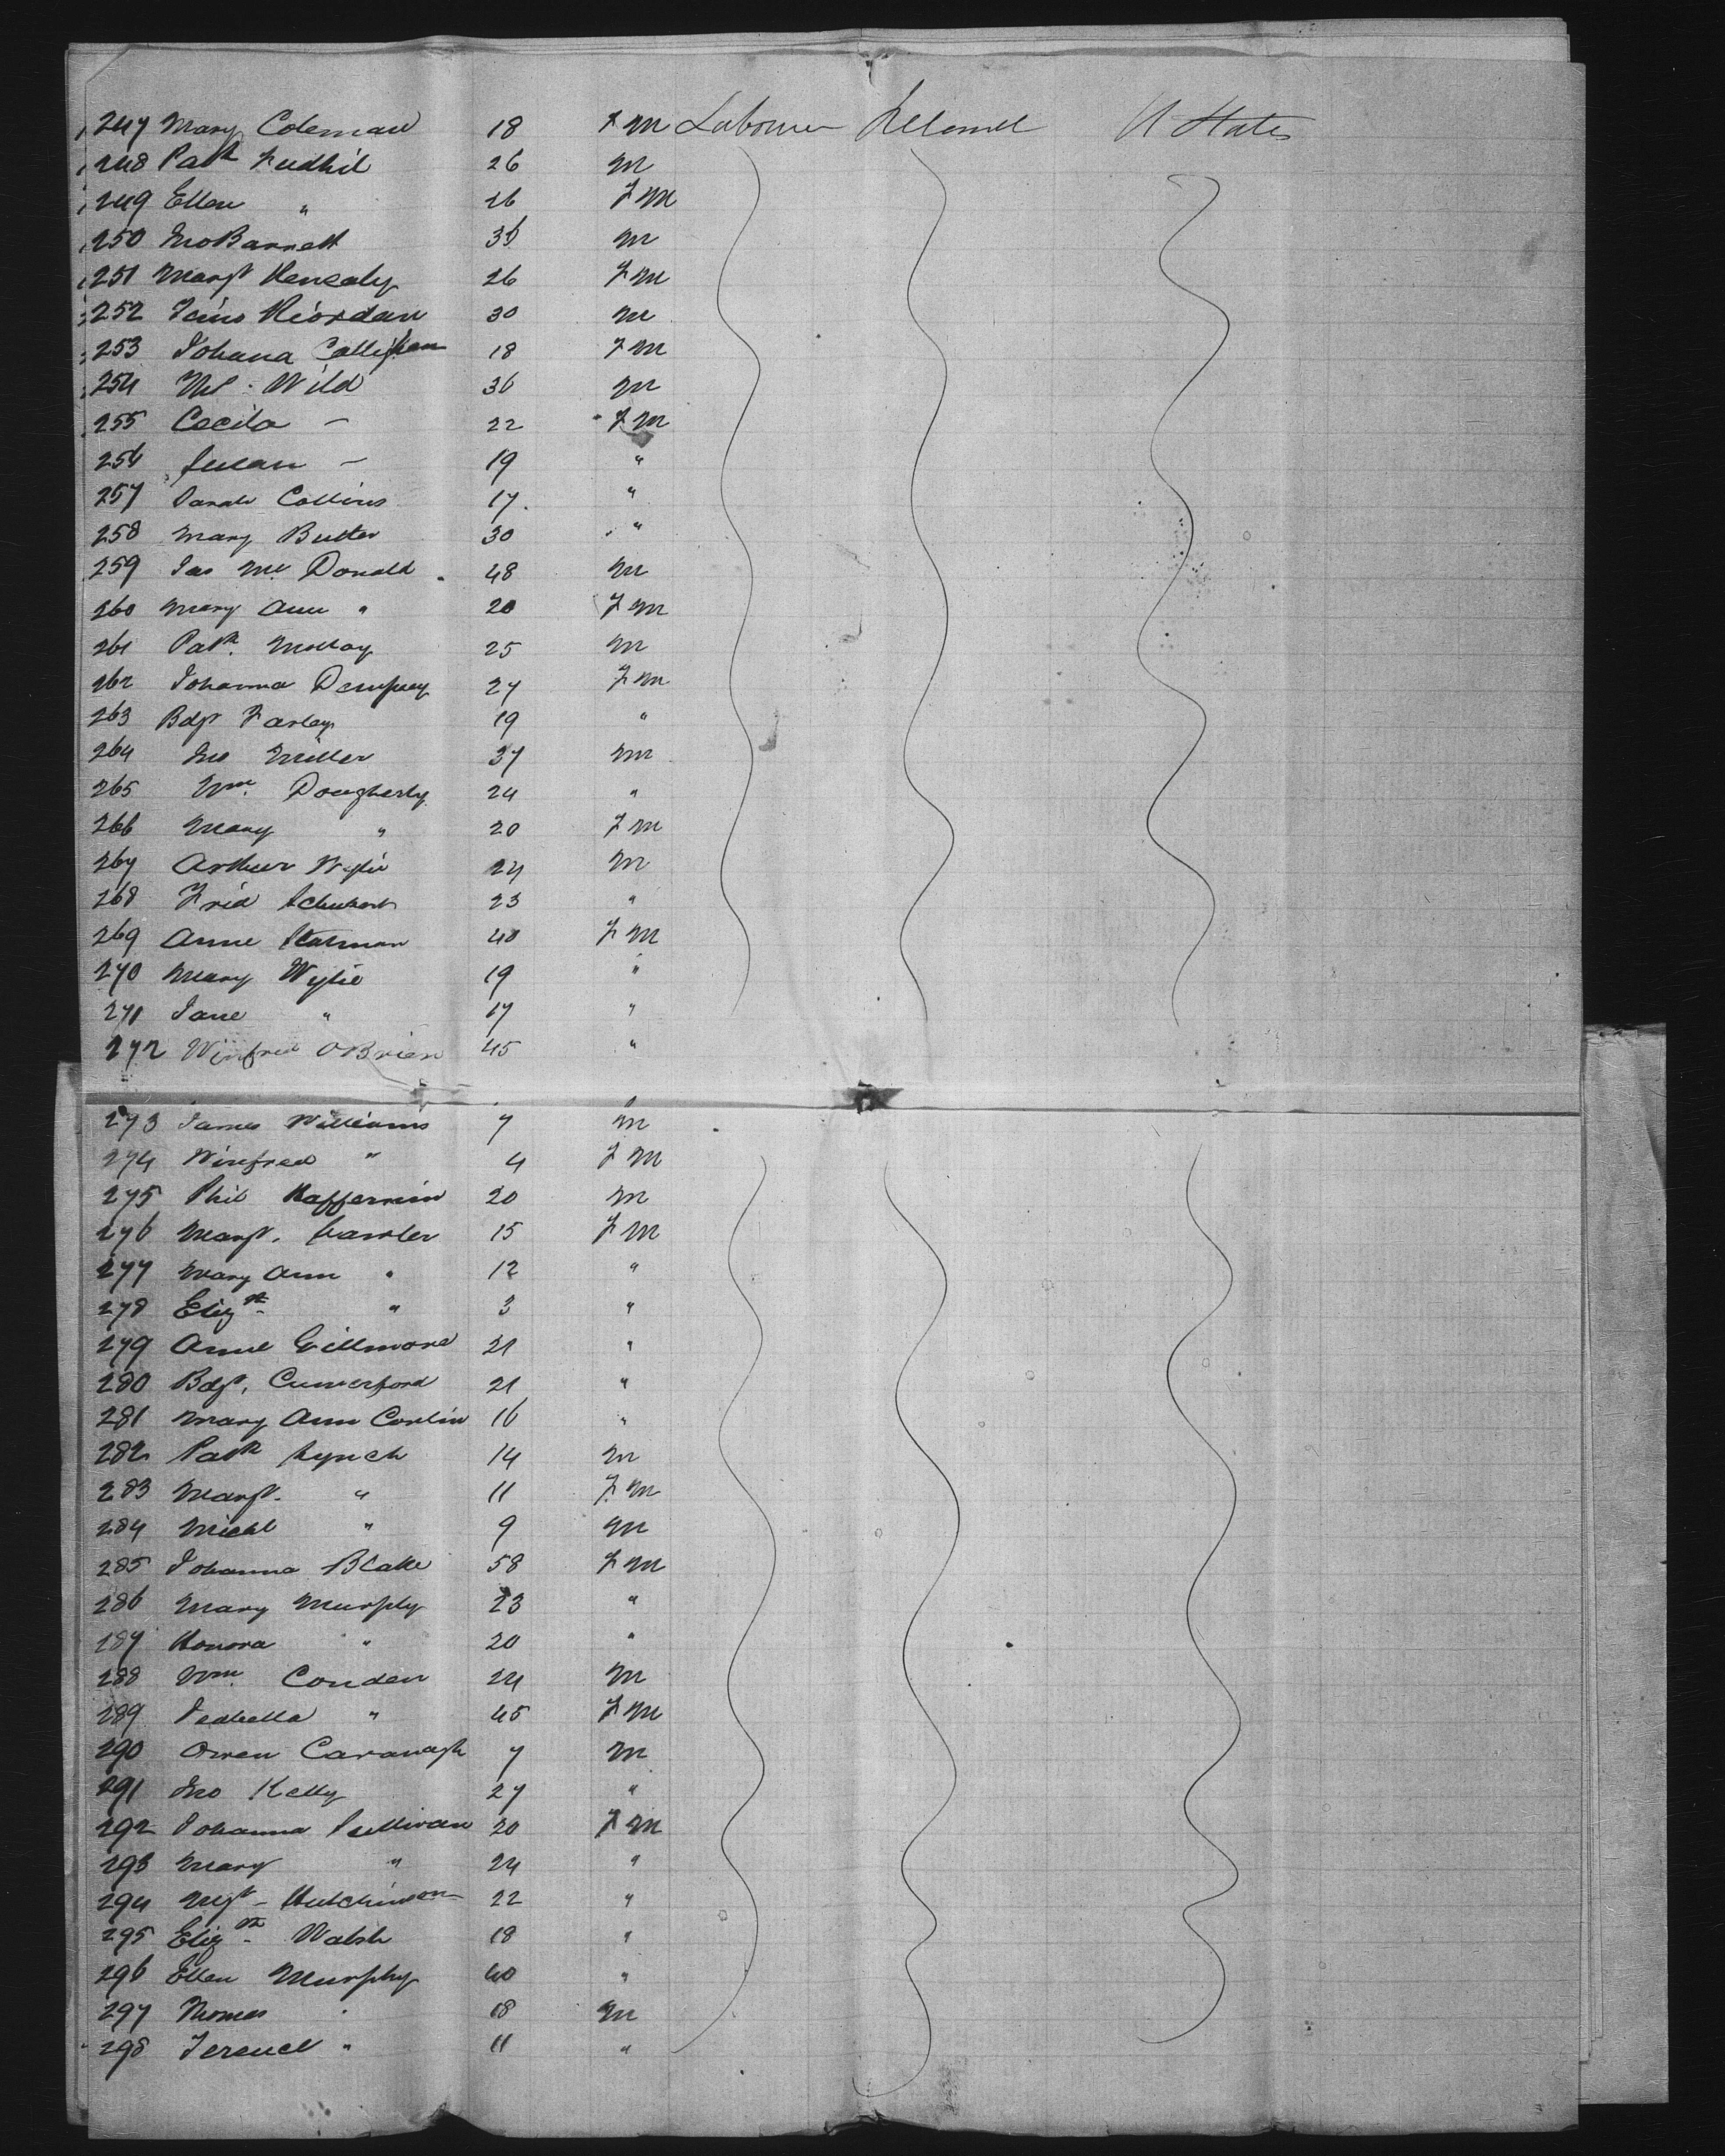 247 Mary Coleman 18 F m Labourer Ireland U States
248 Patk 26 m
249 Ellen " 26 F m
250 Jno Barrett 35 m
251 Margt Henealy 26 F m
252 Riordan 30 m
253 Johana Callighan 18 F m
254 Ml. Wild 36 m
255 Cecila — 22 F m
256 Susan — 19 "
257 Sarah Collins 17 "
258 Mary Butler 30 "
259 Jas Mc Donald 48 m
260 Mary Ann " 20 F m
261 Patk. Molloy 25 m
262 Johanna Dempsey 27 F m
263 Bdgt Farley 19 "
264 Jno Miller 37 m
265 Wm. Dougherty 24 "
266 Mary " 20 F m
267 Arthur Wylie 24 m
268 Fried Schubert 23 "
269 Anne 40 F m
270 Mary Wylie 19 "
271 Jane " 17 "
272 Winfred OBrien 45 "
273 James Williams 7 m
274 Winfred " 4 F m
275 Phil Haffernin 20 m
276 Margt. Lawler 15 F m
277 Mary Ann " 12 "
278 Elizth " 3 "
279 Anne Gillmore 21 "
280 Bdgt. Cumerford 21 "
281 Mary Ann Conlin 16 "
282 Patk Lynch 14 m
283 Margt. " 11 F m
284 Michl " 9 m
285 Johanna Blake 58 F m
286 Mary Murphy 23 "
287 Honora " 20 "
288 Wm. Conden 24 m
289 Isabella " 45 F m
290 Owen Cavanagh 7 m
291 Jno Kelly 27 "
292 Johanna Sullivan 20 F m
293 Mary " 24 "
294 Mgt - Hutchinson 22 "
295 Elizth. Walsh 18 "
296 Ellen Murphy 40 "
297 Thomas " 18 m
298 Terence " 11 "